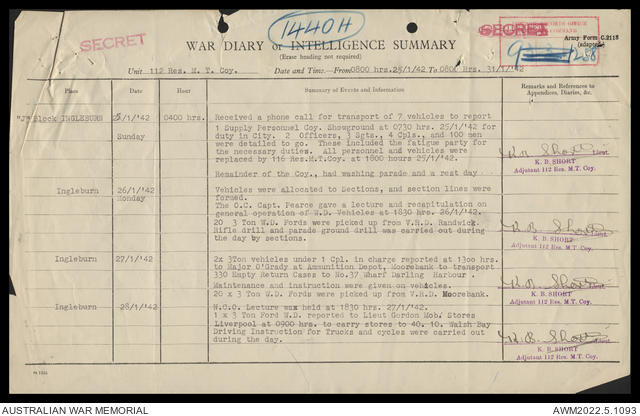 1440H
SECRET
SECRET
Army Form C.2118
(adapted)
WAR DIARY or INTELLIGENCE SUMMARY
(Erase heading not required)
Unit 112 Res. M. T. Coy. Date and Time.—From 0800 hrs. 25/1/42 To 0800 Hrs. 31/1/'42
Place Date Hour Summary of Events and Information Remarks and References to
Appendices, Diaries, &c.
"J" Block INGLEBURN 25/1/'42 0400 hrs. Received a phone call for transport of 7 vehicles to report
1 Supply Personnel Coy. Showground at 0730 hrs. 25/1/'42 for
Sunday duty in City. 2 Officers, 3 Sgts., 4 Cpls., and 100 men
were detailed to go. These included the fatigue party for
the necessary duties. All personnel and vehicles were
replaced by 116 Res.M.T.Coy. at 1800 hours 25/1/'42.
Lieut.
K. B. SHORT
Adjutant 112 Res. M. T. Coy.
Remainder of the Coy., had washing parade and a rest day
Ingleburn 26/1/'42 Vehicles were allocated to Sections, and section lines were
Monday formed.
The O.C. Capt. Pearce gave a lecture and recapitulation on
general operation of W.D. Vehicles at 1830 hrs. 26/1/'42.
20 3 Ton W.D. Fords were picked up from V.R.D. Randwick.
Rifle drill and parade ground drill was carried out during
the day by sections.
K. B. Short Lieut.
K. B. SHORT
Adjutant 112 Res. M.T. Coy.
Ingleburn 27/1/'42 2x 3Ton vehicles under 1 Cpl. in charge reported at 1300 hrs.
to Major O'Grady at Ammunition Depot, Moorebank to transport
330 Empty Return Cases to No.37 Wharf Darling Harbour.
Maintenance and instruction were given on vehicles.
20 x 3 Ton W.D. Fords were picked up from V.R.D. Moorebank.
K. B. Short Lieut.
K. B. SHORT
Adjutant 112 Res. M.T. Coy.
Ingleburn 28/1/'42 N.C.O. Lecture was held at 1830 hrs. 27/1/'42.
1 x 3 Ton Ford W.D. reported to Lieut Gordon Mob. Stores
Liverpool at 0900 hrs. to carry stores to 40. 10. Walsh Bay
Driving Instruction for Trucks and cycles were carried out
during the day.
K. B. Short Lieut.
K. B. SHORT
Adjutant 112 Res. M.T. Coy.
AUSTRALIAN WAR MEMORIAL
AWM2022.5.1093